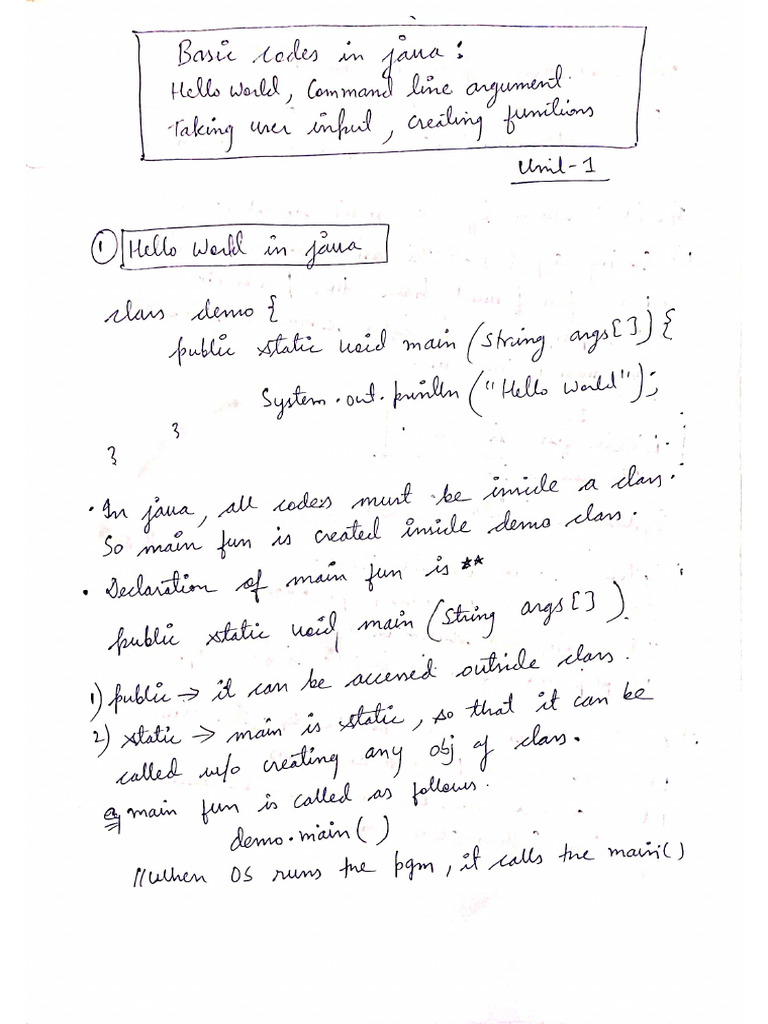 Basic codes in java:
Hello World, Command line argument.
Taking user input, creating functions
Unit-1
① Hello World in java
class demo {
public static void main (String args[]) {
System.out.println ("Hello World");
}
}
• In java, all codes must be inside a class.
So main fun is created inside demo class.
• Declaration of main fun is **
public static void main (String args[])
1) public → it can be accessed outside class.
2) static → main is static, so that it can be
called w/o creating any obj of class.
eg main fun is called as follows.
demo.main()
//When OS runs the pgm, it calls the main()